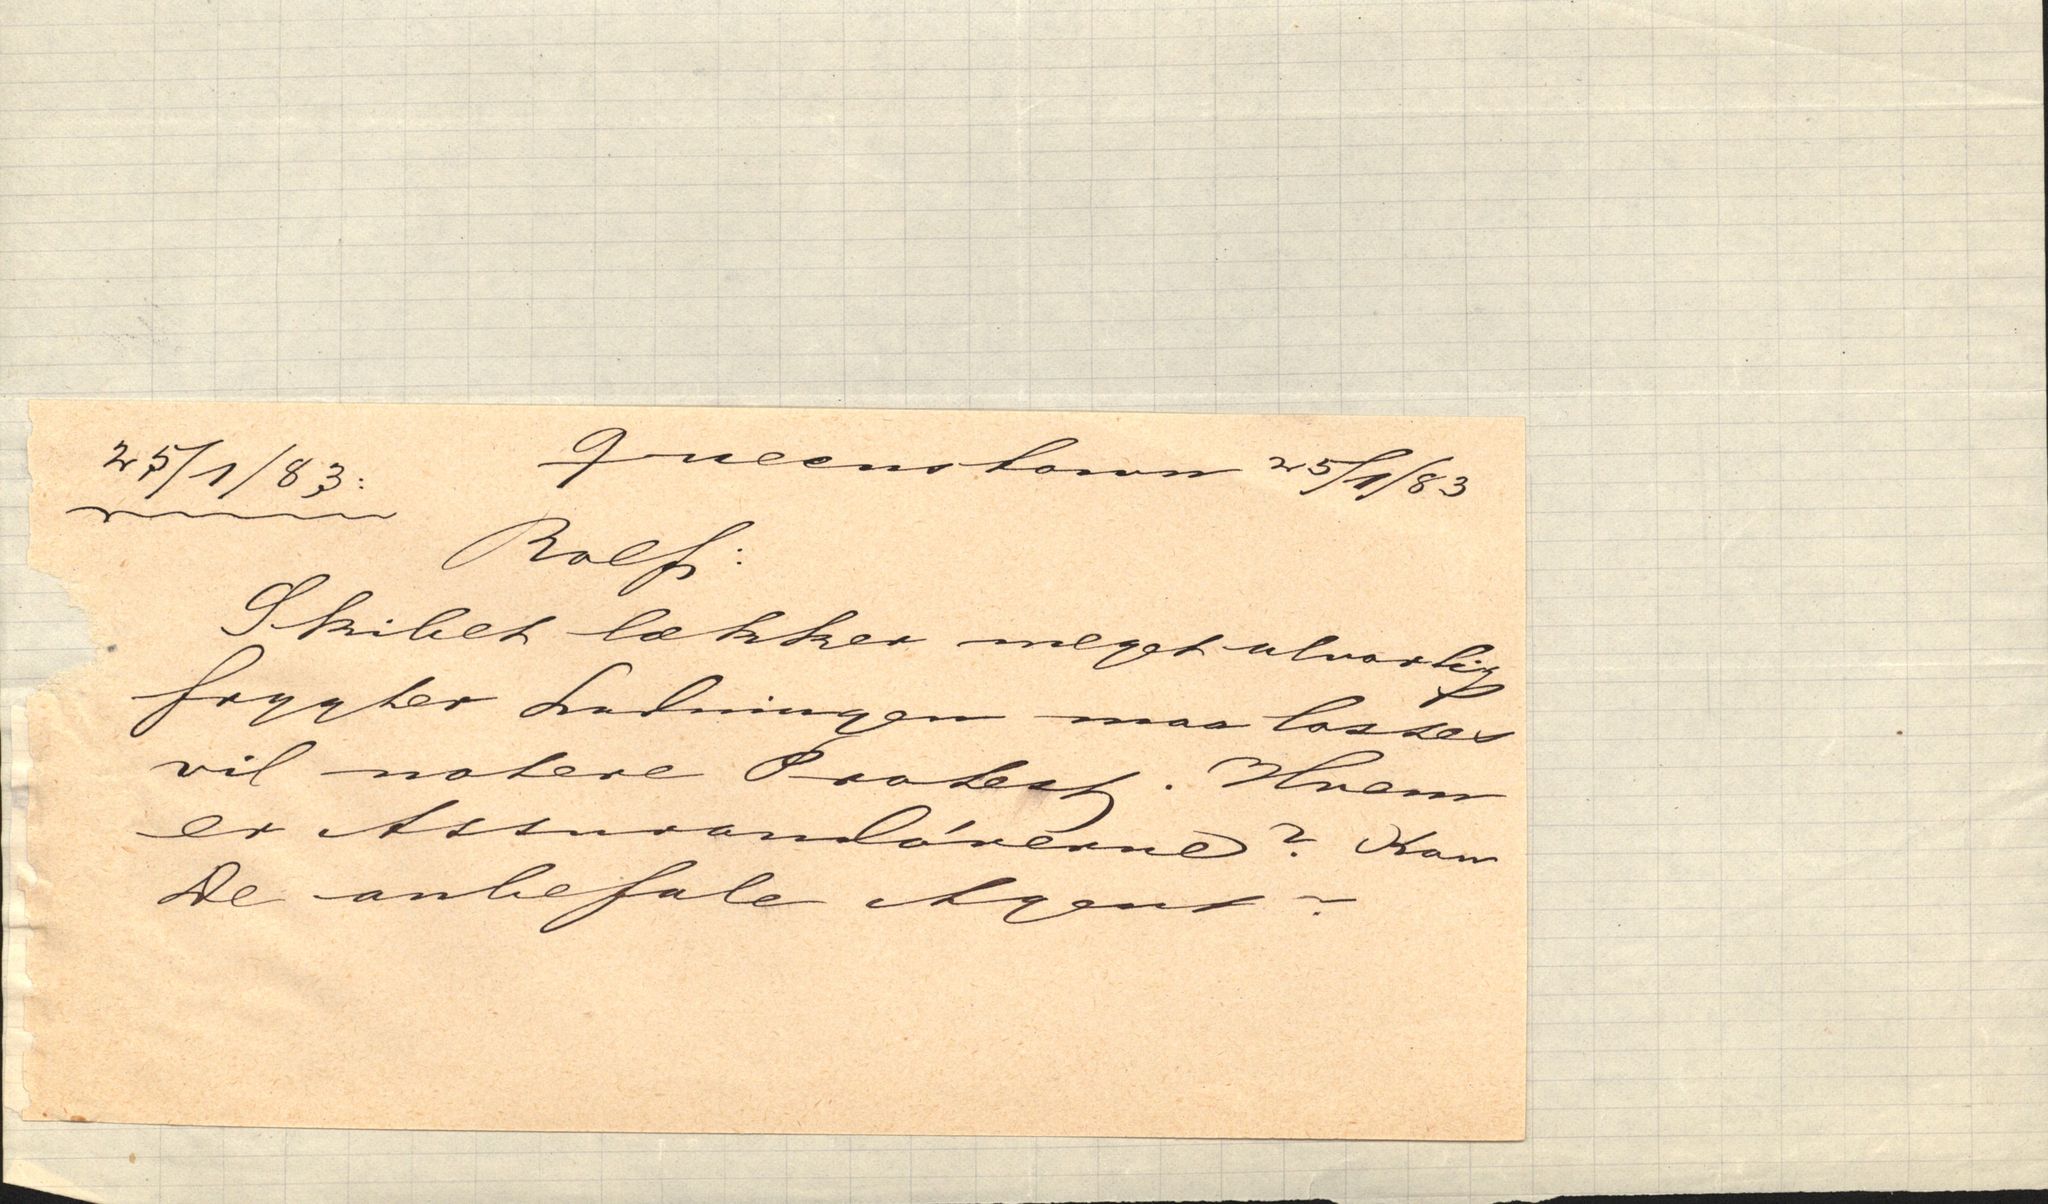 25/1/83: Queenstown 25/1/83
Rolf:
Skibet lækker meget alvorlig
frygter Ladningen maa losses
vil notere Protest. Hvem
er Assurandørerne? Kan
De anbefale Agent?